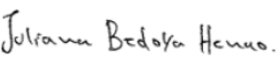 Juliana Bedoya Henao.